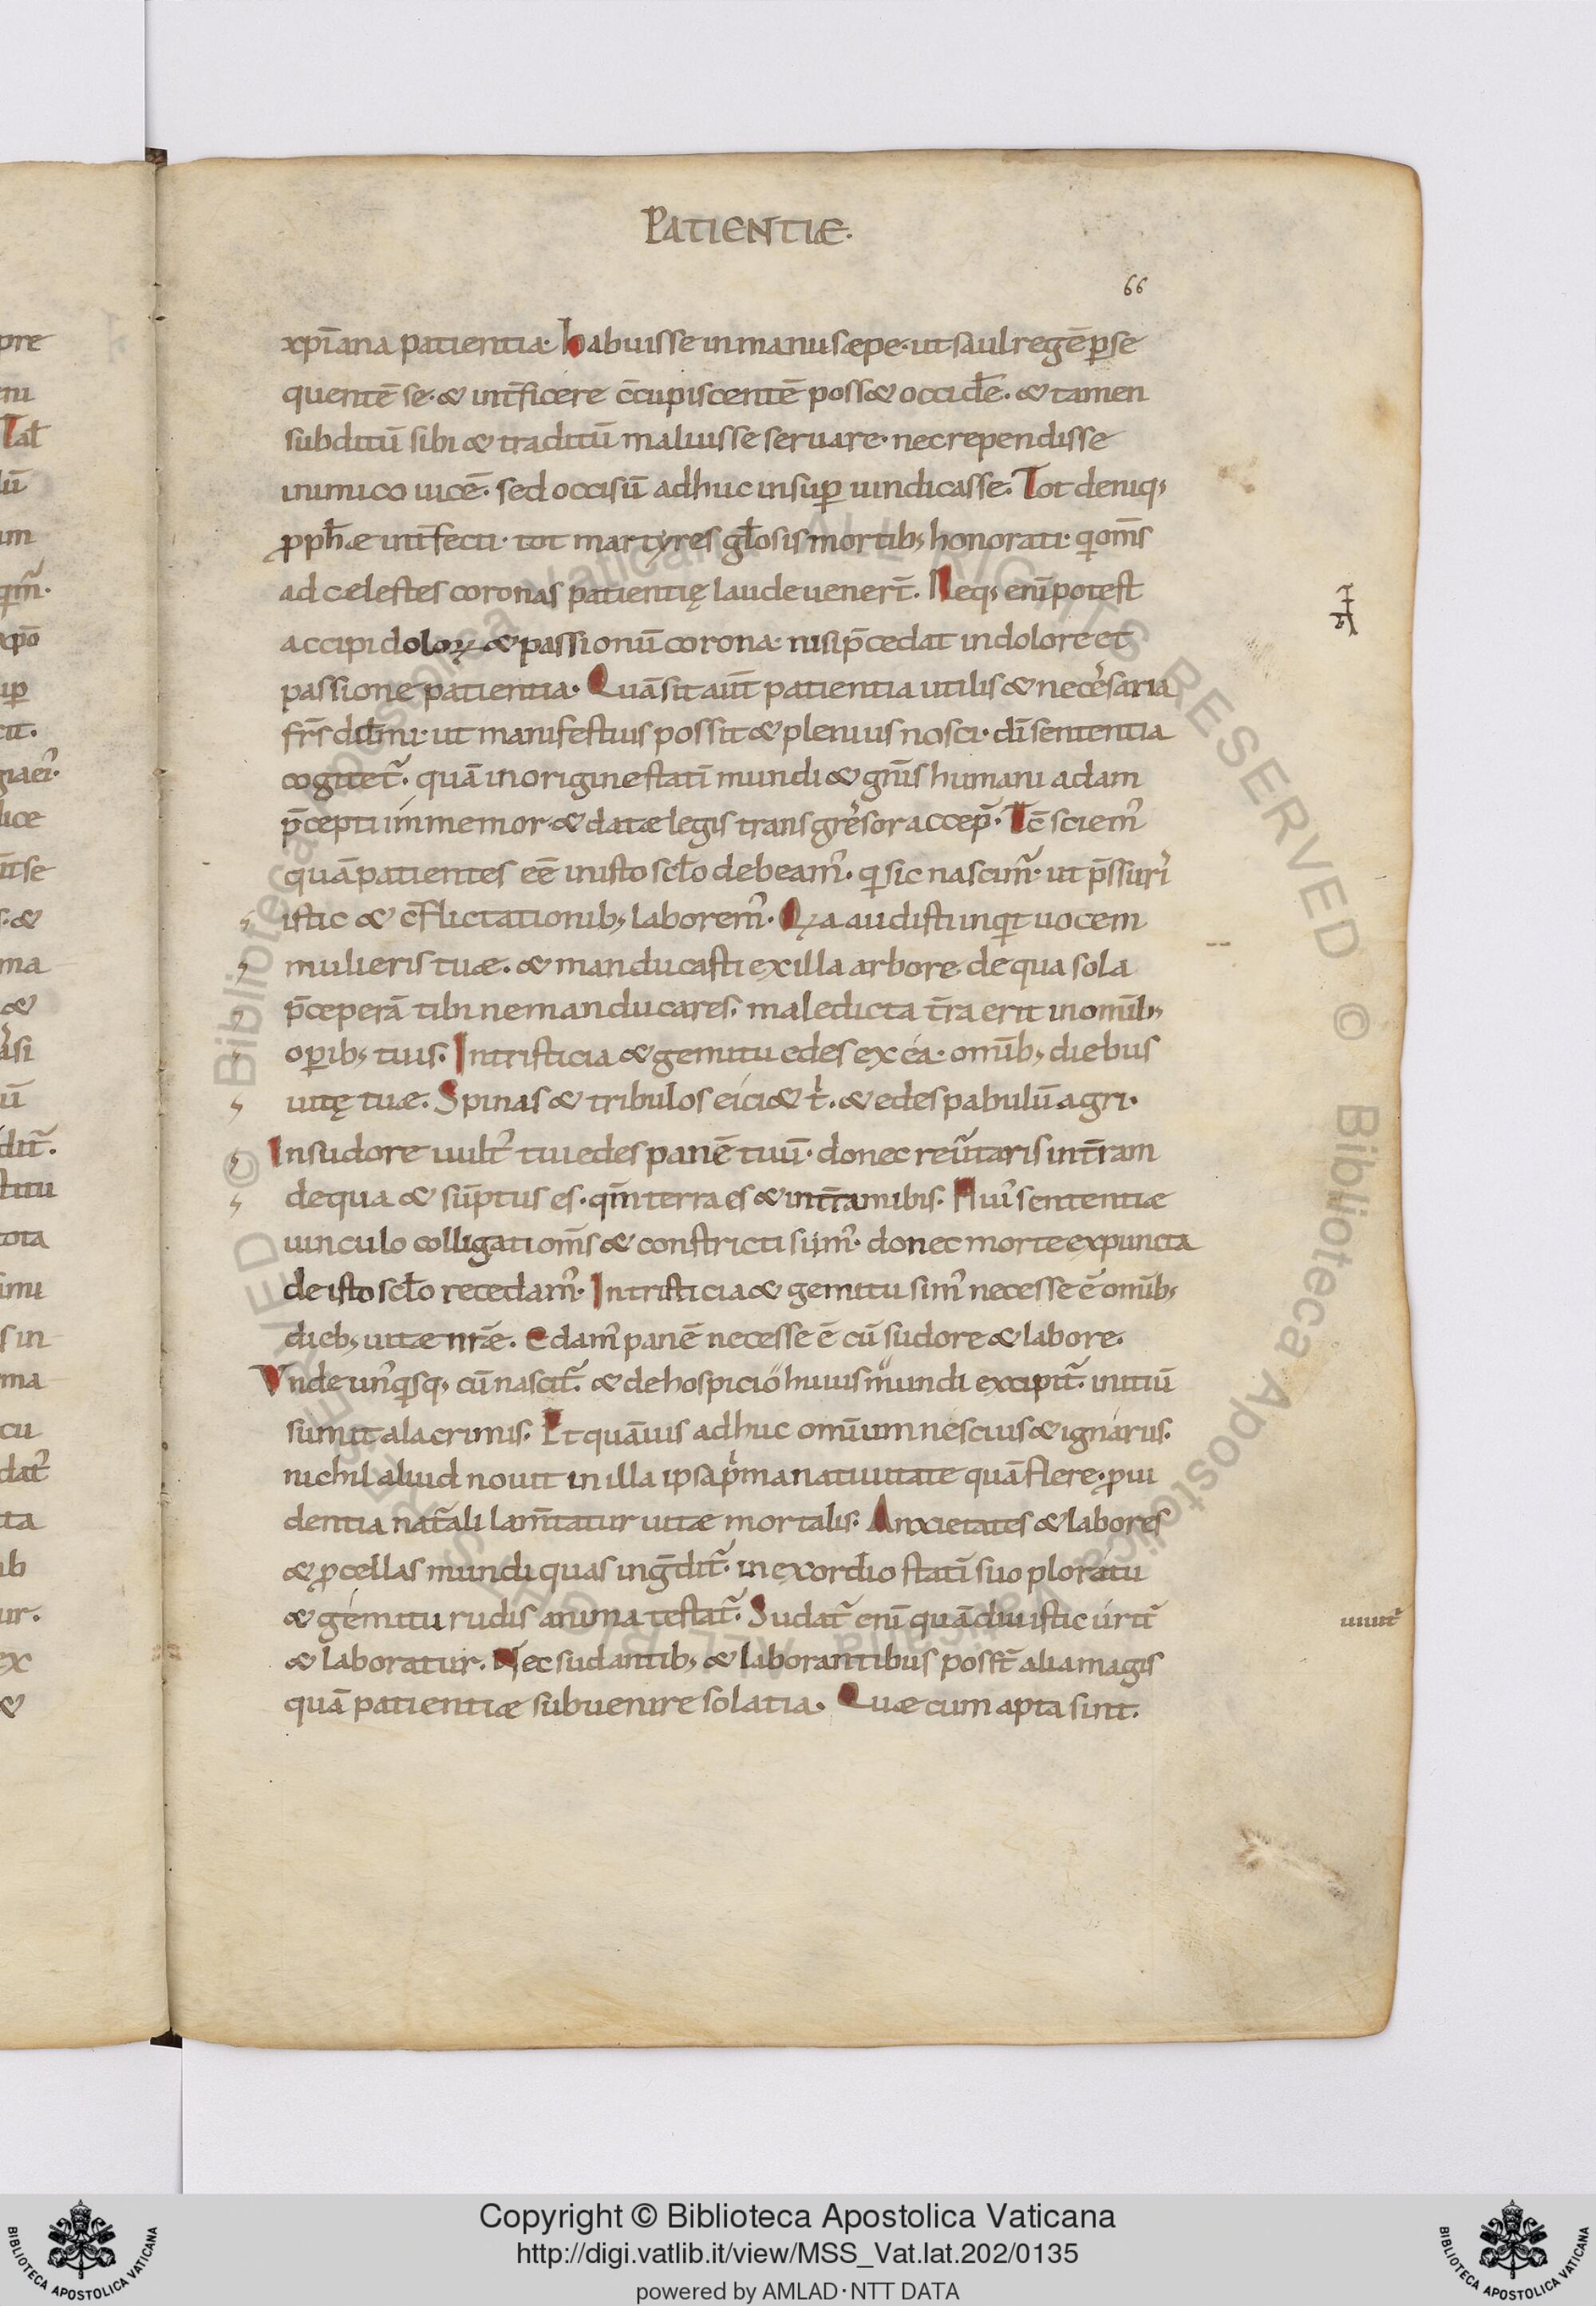 PATIENTIÆ.
66
xp̄iana patientia. habuisse in manu sæpe. ut saul regē p̱se
quentē se. & int̄ficere c̄cupiscentē poss& occid̄e. & tamen
subditū sibi & traditū maluisse seruare. nec rependisse
inimico uicē. sed occisū adhuc insup̱ uindicasse. Tot deniq;
ꝓph̄æ int̄fecti. tot martyres gl̄osis mortib; honorati. qi om̄s
ad cælestes coronas patientię laude uener̄t. Neq; eni̅ potest
accipi doloꝝ & passionū corona. nisi p̄cedat in dolore et
passione patientia. Quā sit aut̄ patientia utilis & necessaria
fr̄s dil̄mi. ut manifestius possit & plenius nosci. di̅ sententia
cogitet᷑. quā in origine stati̅ mundi & gn̄is humani adam
p̄cepti immemor & datæ legis transgressor accep̄. Tc̄ sciem᾿
quā patientes eē in isto scl̄o debeam᾿. qi sic nascim᷑. ut p̄ssuri᾿
istic & c̄flictationib; laborem᾿. Qꝛa audisti inqit uocem
mulieris tuæ. & manducasti ex illa arbore de qua sola
p̄ceperā tibi ne manducares. maledicta t̄ra erit in omi̅b;
op̱ib; tuis. In tristicia & gemitu edes ex ea. omi̅b; diebus
uitę tuæ. Spinas & tribulos eici& t᷑. & edes pabulū agri.
In sudore uult᾿ tui edes panē tuū. donec reu᷑taris in t̄ram
de qua & sūptus es. qm̄ terra es & in t̄ram ibis. Hui᾿ sententiæ
uinculo colligati om̄s & constricti sum᾿. donec morte expuncta
de isto scl̄o recedam᾿. In tristicia & gemitu sim᾿ necesse ē omi̅b;
dieb; uitæ nr̄æ. Edam᾿ panē necesse ē cū sudore & labore.
Vnde un᾿qisq; cū nascit᷑. & de hospicio huius mundi excipit᷑. initiū
sumit a lacrimis. Et quāuis adhuc omi̅um nescius & ignarus.
nichil aliud nouit in illa ipsa prima natiuitate quā flere. ꝓui
dentia nat᷑ali lam̄tatur uitæ mortalis. Anxietates & labores
& ꝓcellas mundi quas inḡdit᷑. in exordio stati̅ suo ploratu
& gemitu rudis anima testat᷑. Sudat᷑ eni̅ quādiu istic urit᷑
uiuit᷑
& laboratur. Nec sudantib; & laborantibus poss̄t alia magis
quā patientiæ subuenire solatia. Quæ cum apta sint.
pre
Copyright © Biblioteca Apostolica Vaticana
http://digi.vatlib.it/view/MSS_Vat.lat.202/0135
powered by AMLAD·NTT DATA
BIBLIOTECA APOSTOLICA VATICANA
BIBLIOTECA APOSTOLICA VATICANA